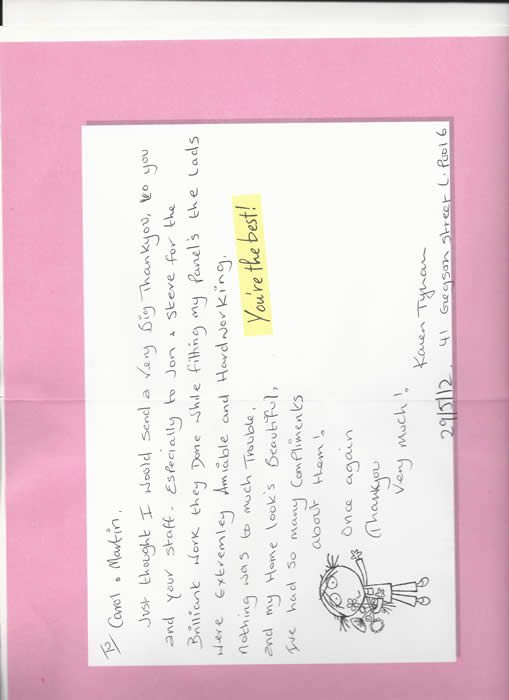 To Carol & Martin,
Just thought I would send a Very Big Thankyou, to you
and your staff. Especially to Jon & Steve for the
Brilliant work they Done while fitting my Panel's the Lads
were Extremley Amiable and Hardworking.
Nothing was to much Trouble.
and my Home look's Beautiful,
You're the best!
I've had so many Compliments
about them!.
Once again
Thankyou
Very Much!.
Karen Tynan
29/5/12. 41 Gregson Street L.Pool 6